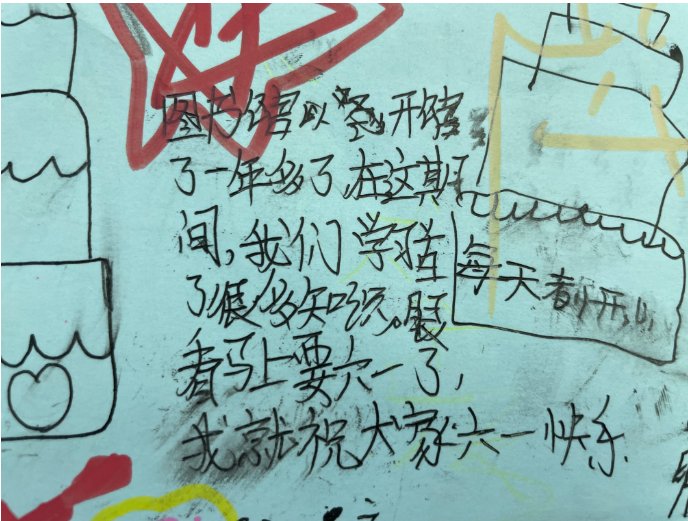 图书馆以经开馆
了一年多了,在这期
间,我们学习
了很多知识。眼
看马上要六一了,
我就祝大家六一快乐
每天都开心